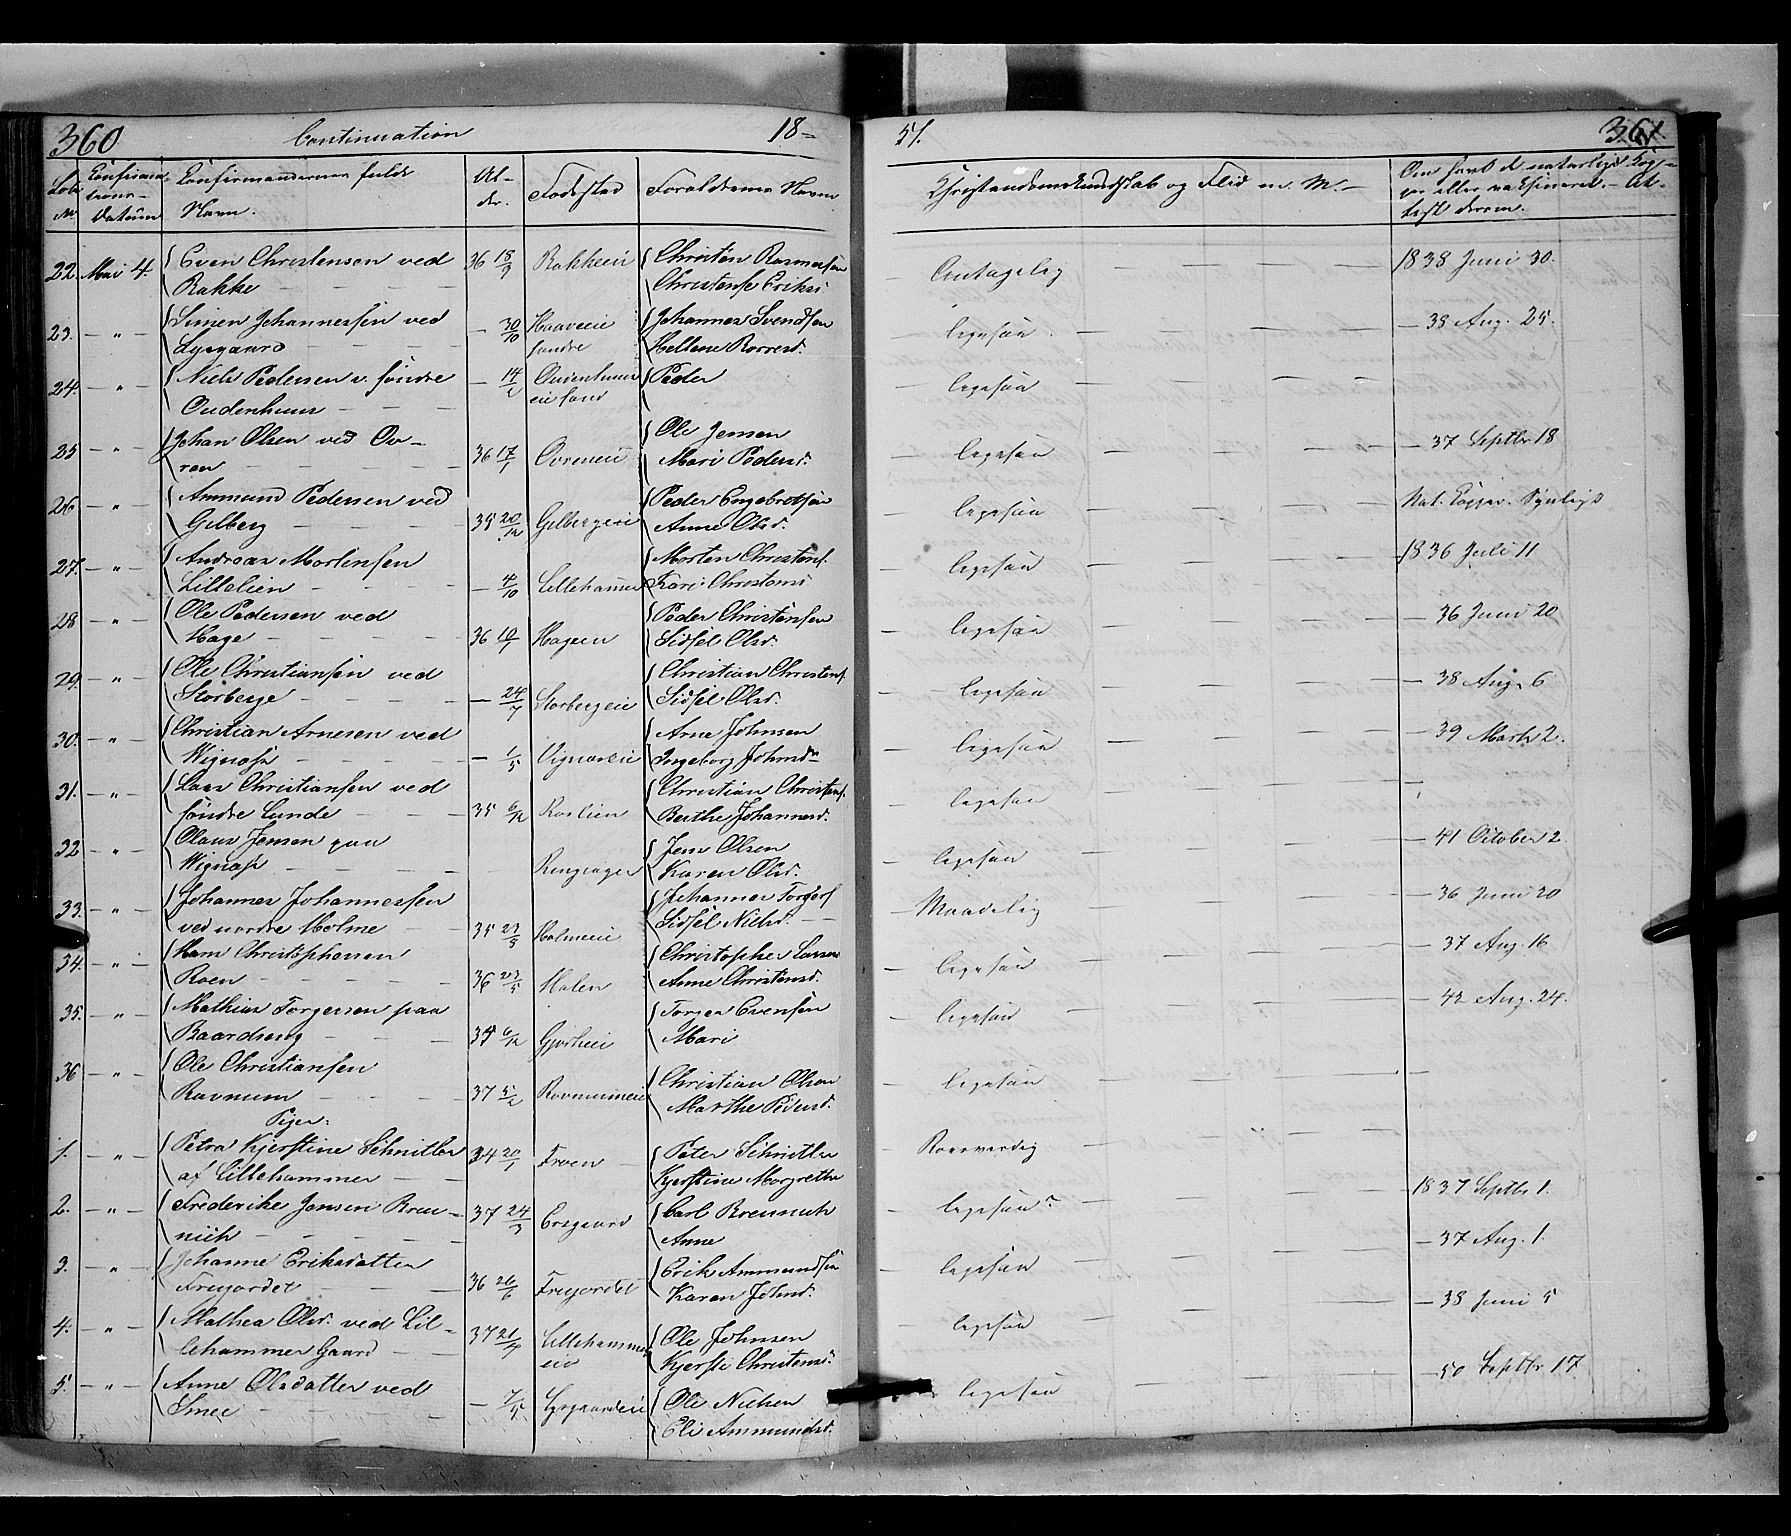 360 Continuation 18- 51. 361
Löbe No Confirma- tions- Datum Confirmandernes fulde Navn. Al- der. Födested Forældrenes Navn Christendomskundskab og Flid m. M. Om havt de naturlige Kop- per eller vaksineret. At- test derom.
22. Mai 4. Even Christensen ved 36 18/9 Rakkeeie Christen Rasmusön Antagelig 1838 Juni 30.
Rakke Christense Eriksd.
23. " Simen Johannessen ved 30/10 Haaveeie Johannes Svendsen ligesaa 38 Aug. 25.
Lysgaard söndre Hellene Rorresd.
24. " Niels Pedersen v. söndre 14/2 Oudenhuus Peder ligesaa
Oudenhuus eie Land
25 " Johan Olsen ved Ov- 36 17/1 Ovreneie Ole Jensen ligesaa 37 Septbr 18
ren Mari Pedersd.
26 " Ammund Pedersen ved 35 20/12 Gelbergeie Peder Engebretsön ligesaa Nat. Kopper. Synligt
Gelberg Anne Olsd.
27. " Andreas Mortensen 4/10 Lillehammer Morten Christens. ligesaa 1836 Juli 11
Lillelien Kari Christensd
28 " Ole Pedersen ved 36 10/1 Hageen Peder Christensen ligesaa 36 Juni 20
Hage Sidsel Olsd.
29. " Ole Christiansen ved 24/7 Storbergeie Christian Christens. ligesaa 38 Aug. 6
Storberge Sidsel Olsd.
30. " Christian Arnesen ved 1/5 Vignæseie Arne Johnsen ligesaa 39 Marts 2.
Wignæs Ingeborg Johnsd
31. " Lars Christiansen ved 35 6/12 Roslien Christian Christens. ligesaa
söndre Lunde Berthe Johannesd.
32 " Olaus Jensen paa Ringsager Jens Olsen ligesaa 41 October 2.
Wignæs Karen Olsd.
33. " Johannes Johannessen 35 23/5 Holmeeie Johannes Torgers Maadelig 36 Juni 20
ved nordre Holme Sidsel Nielsd.
34. " Hans Christophersen 36 23/5 Holen Christopher Larsen ligesaa 37 Aug. 16
Roen Anne Christensd.
35. " Mathias Torgersen paa 35 6/12 Torger Evensön ligesaa 42 Aug. 24.
Baardseng Mari
36 " Ole Christiansen 37 5/2 Rovnumeie Christian Olsen ligesaa
Rovnum Marthe Pedersd.
Piger.
1. " Petra Kjerstine Schnitler 34 20/1 Froen Peter Schnitler Roesværdig
af Lillehammer Kjerstine Margrethe
2. " Frederikke Jensen Breu- 37 24/3 Carl Breunich ligesaa 1837 Septbr 1.
nich Anne
3. " Johanne Eriksdatter 36 26/6 Fregardet Erik Ammundsön ligesaa 37 Aug. 1.
Fregardet Karen Johnsd.
4. " Mathea Olsd. ved Lil- 37 21/4 Lillehammer Ole Johnsen ligesaa 38 Juni 5
lehammer Gaard eie Kjersti Christensd.
5. " Anne Olsdatter ved 7/5 Lysgaardeie Ole Nielsen ligesaa 50 Septbr 17
Smee Eli Ammundsd.